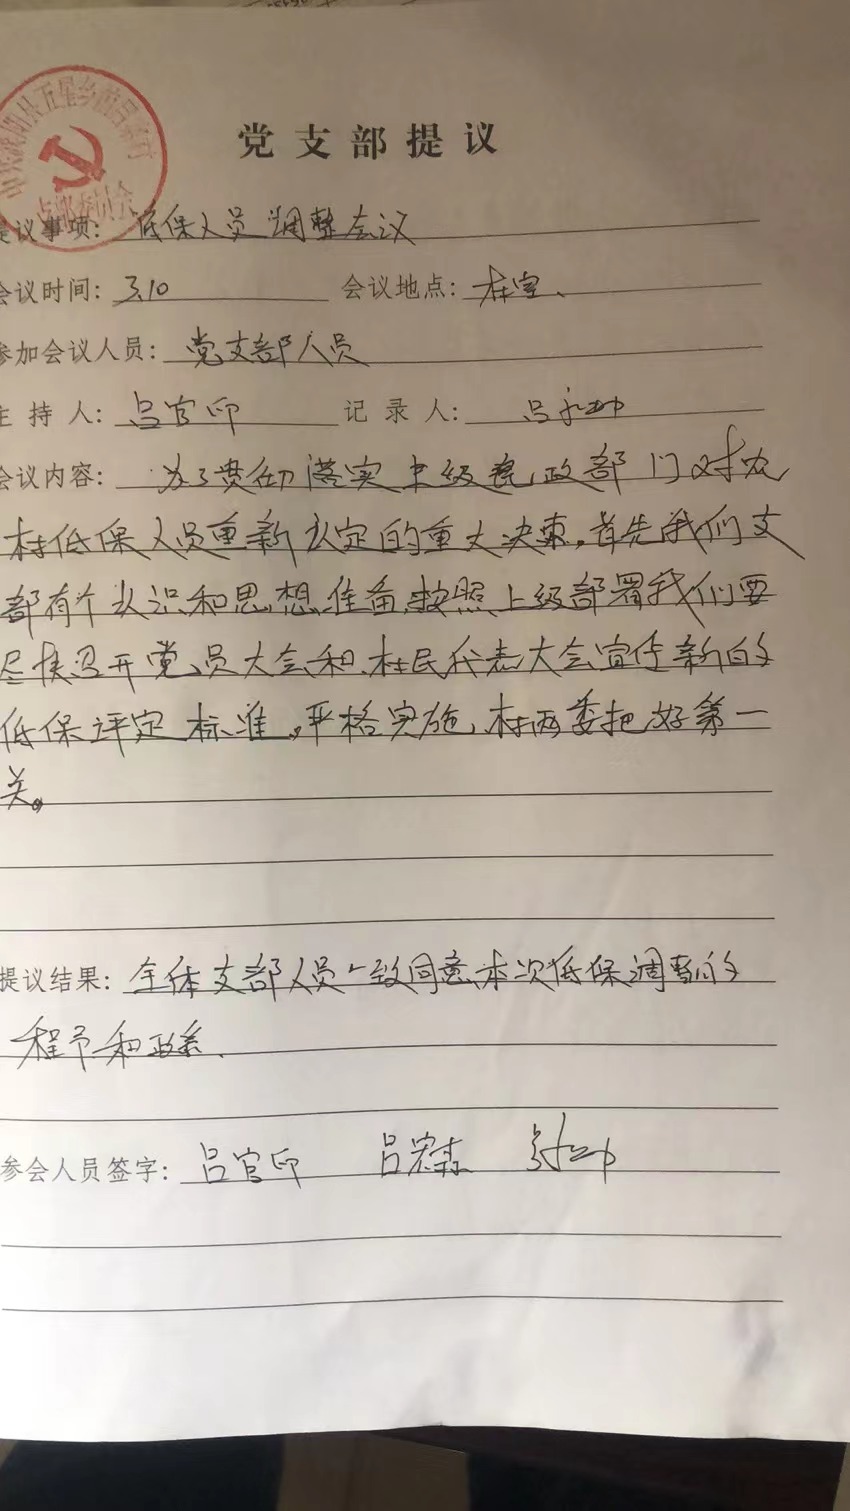 党支部提议
提议事项: 低保人员调整会议
会议时间: 3.10 会议地点: 村室.
参加会议人员: 党支部人员
主持人: 吕官印 记录人: 吕
会议内容: 为了贯彻落实上级党政部门对农
村低保人员重新认定的重大决策,首先我们支
部有个认识和思想准备,按照上级部署我们要
尽快召开党员大会和村民代表大会宣传新的
低保评定标准,严格实施,村两委把好第一
关。
提议结果: 全体支部人员一致同意本次低保调整的
程予和政系.
参会人员签字: 吕官印 吕宏森